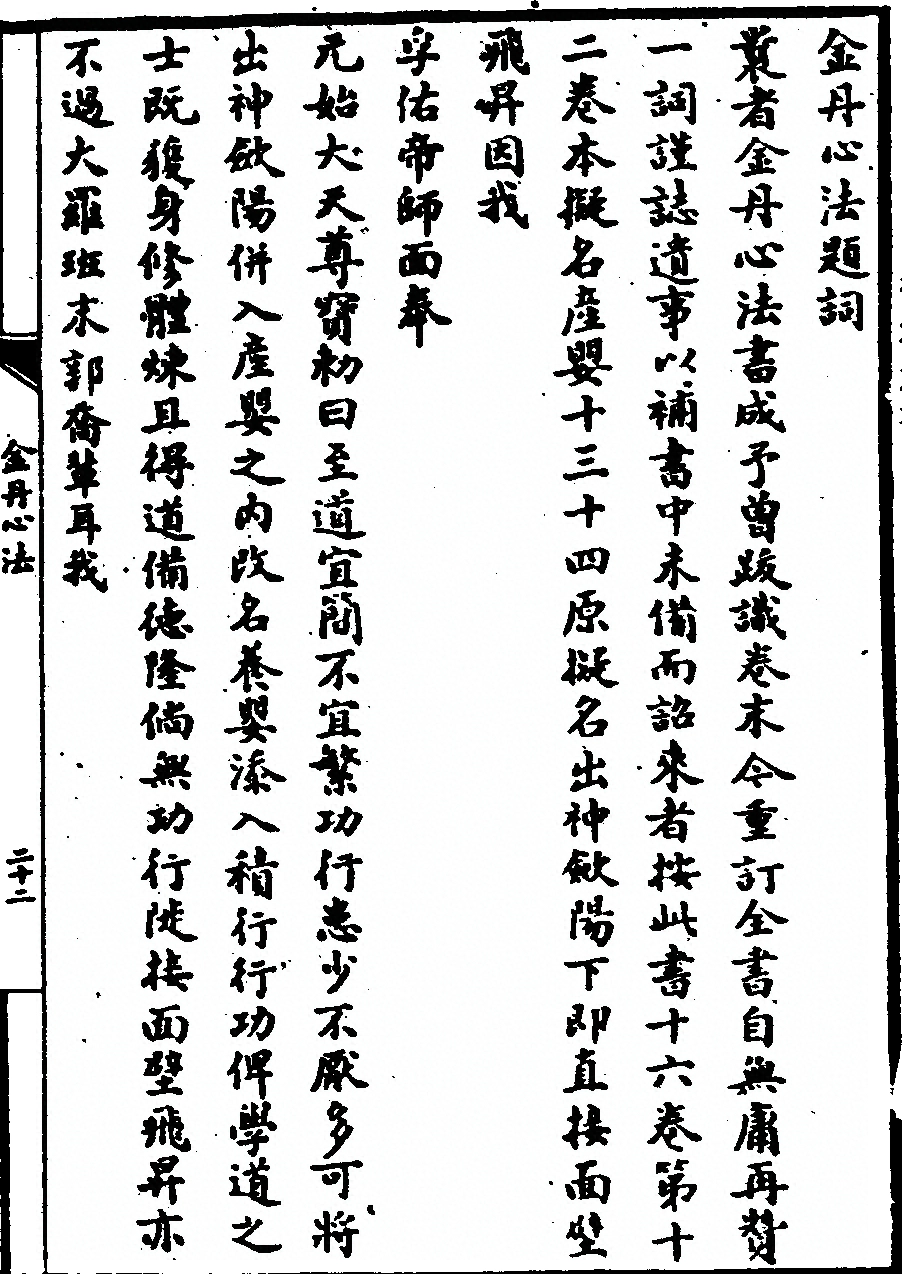 金丹心法題詞
曩者金丹心法書成予曾跋識卷末今重訂全書自無庸再贅
一詞謹誌遺事以補書中未備而詔來者按此書十六卷第十
二卷本擬名產嬰十三十四原擬名出神斂陽下即直接面壁
飛昇因我
孚佑帝師面奉
元始大天尊寶勅曰至道宜簡不宜繁功行患少不厭多可將
出神斂陽併入產嬰之內改名養嬰添入積行行功俾學道之
士既獲身修體煉且得道備德隆倘無功行陡接面壁飛昇亦
不過大羅班末郭喬輩耳我
金丹心法
二十二